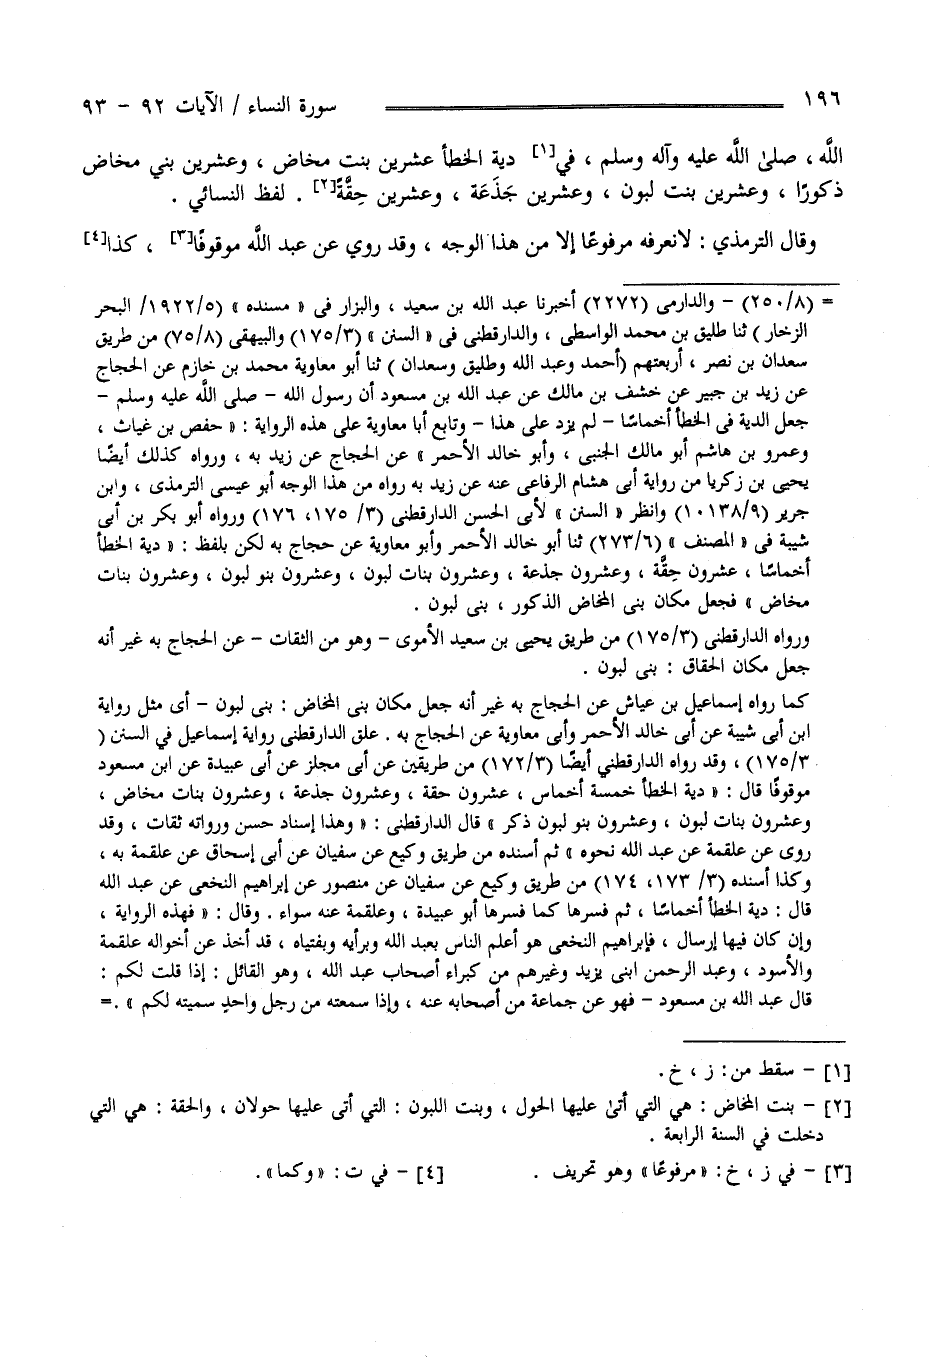 ١٩٦ سورة النساء / الآيات ٩٢ - ٩٣
اللَّه ، صلىٰ اللَّه عليه وآله وسلم ، في[١] دية الخطأ عشرين بنت مخاض ، وعشرين بني مخاض
ذكورًا ، وعشرين بنت لبون ، وعشرين جَذَعَة ، وعشرين حِقَّةً[٢] . لفظ النسائي .
وقال الترمذي : لانعرفه مرفوعًا إلا من هذا الوجه ، وقد روي عن عبد اللَّه موقوفًا[٣] ، كذا[٤]
= (٢٥٠/٨) - والدارمى (٢٢٧٢) أخبرنا عبد الله بن سعيد ، والبزار فى « مسنده » (١٩٢٢/٥/ البحر
الزخار ) ثنا طليق بن محمد الواسطى ، والدارقطنى فى « السنن » (١٧٥/٣) والبيهقى (٧٥/٨) من طريق
سعدان بن نصر ، أربعتهم (أحمد وعبد الله وطليق وسعدان ) ثنا أبو معاوية محمد بن خازم عن الحجاج
عن زيد بن جبير عن خشف بن مالك عن عبد الله بن مسعود أن رسول الله - صلى اللَّه عليه وسلم -
جعل الدية فى الخطأ أخماسًا - لم يزد على هذا - وتابع أبا معاوية على هذه الرواية : « حفص بن غياث ،
وعمرو بن هاشم أبو مالك الجنبى ، وأبو خالد الأحمر » عن الحجاج عن زيد به ، ورواه كذلك أيضًا
يحيى بن زكريا من رواية أبى هشام الرفاعى عنه عن زيد به رواه من هذا الوجه أبو عيسى الترمذى ، وابن
جرير (١٠١٣٨/٩) وانظر « السنن » لأبى الحسن الدارقطنى (٣/ ١٧٥، ١٧٦) ورواه أبو بكر بن أبى
شيبة فى « المصنف » (٢٧٣/٦) ثنا أبو خالد الأحمر وأبو معاوية عن حجاج به لكن بلفظ : « دية الخطأ
أخماسًا ، عشرون حِقَّة ، وعشرون جذعة ، وعشرون بنات لبون ، وعشرون بنو لبون ، وعشرون بنات
مخاض » فجعل مكان بنى المخاض الذكور ، بنى لبون .
ورواه الدارقطنى (١٧٥/٣) من طريق يحيى بن سعيد الأموى - وهو من الثقات - عن الحجاج به غير أنه
جعل مكان الحقاق : بنى لبون .
كما رواه إسماعيل بن عياش عن الحجاج به غير أنه جعل مكان بنى المخاض : بنى لبون - أى مثل رواية
ابن أبى شيبة عن أبى خالد الأحمر وأبى معاوية عن الحجاج به . علق الدارقطنى رواية إسماعيل في السنن (
١٧٥/٣) ، وقد رواه الدارقطني أيضًا (١٧٢/٣) من طريقين عن أبى مجلز عن أبى عبيدة عن ابن مسعود
موقوفًا قال : « دية الخطأ خمسة أخماس ، عشرون حقة ، وعشرون جذعة ، وعشرون بنات مخاض ،
وعشرون بنات لبون ، وعشرون بنو لبون ذكر » قال الدارقطنى : « وهذا إسناد حسن ورواته ثقات ، وقد
روى عن علقمة عن عبد الله نحوه » ثم أسنده من طريق وكيع عن سفيان عن أبى إسحاق عن علقمة به ،
وكذا أسنده (٣/ ١٧٣، ١٧٤) من طريق وكيع عن سفيان عن منصور عن إبراهيم النخعى عن عبد الله
قال : دية الخطأ أخماسًا ، ثم فسرها كما فسرها أبو عبيدة ، وعلقمة عنه سواء . وقال : « فهذه الرواية ،
وإن كان فيها إرسال ، فإبراهيم النخعى هو أعلم الناس بعبد الله وبرأيه وبفتياه ، قد أخذ عن أخواله علقمة
والأسود ، وعبد الرحمن ابنى يزيد وغيرهم من كبراء أصحاب عبد الله ، وهو القائل : إذا قلت لكم :
قال عبد الله بن مسعود - فهو عن جماعة من أصحابه عنه ، وإذا سمعته من رجل واحدٍ سميته لكم » .=
[١] - سقط من: ز ، خ.
[٢] - بنت المخاض : هي التي أتىٰ عليها الحول ، وبنت اللبون : التي أتى عليها حولان ، والحقة : هي التي
دخلت في السنة الرابعة .
[٣] - في ز ، خ: «مرفوعًا» وهو تحريف . [٤] - في ت: «وكما».